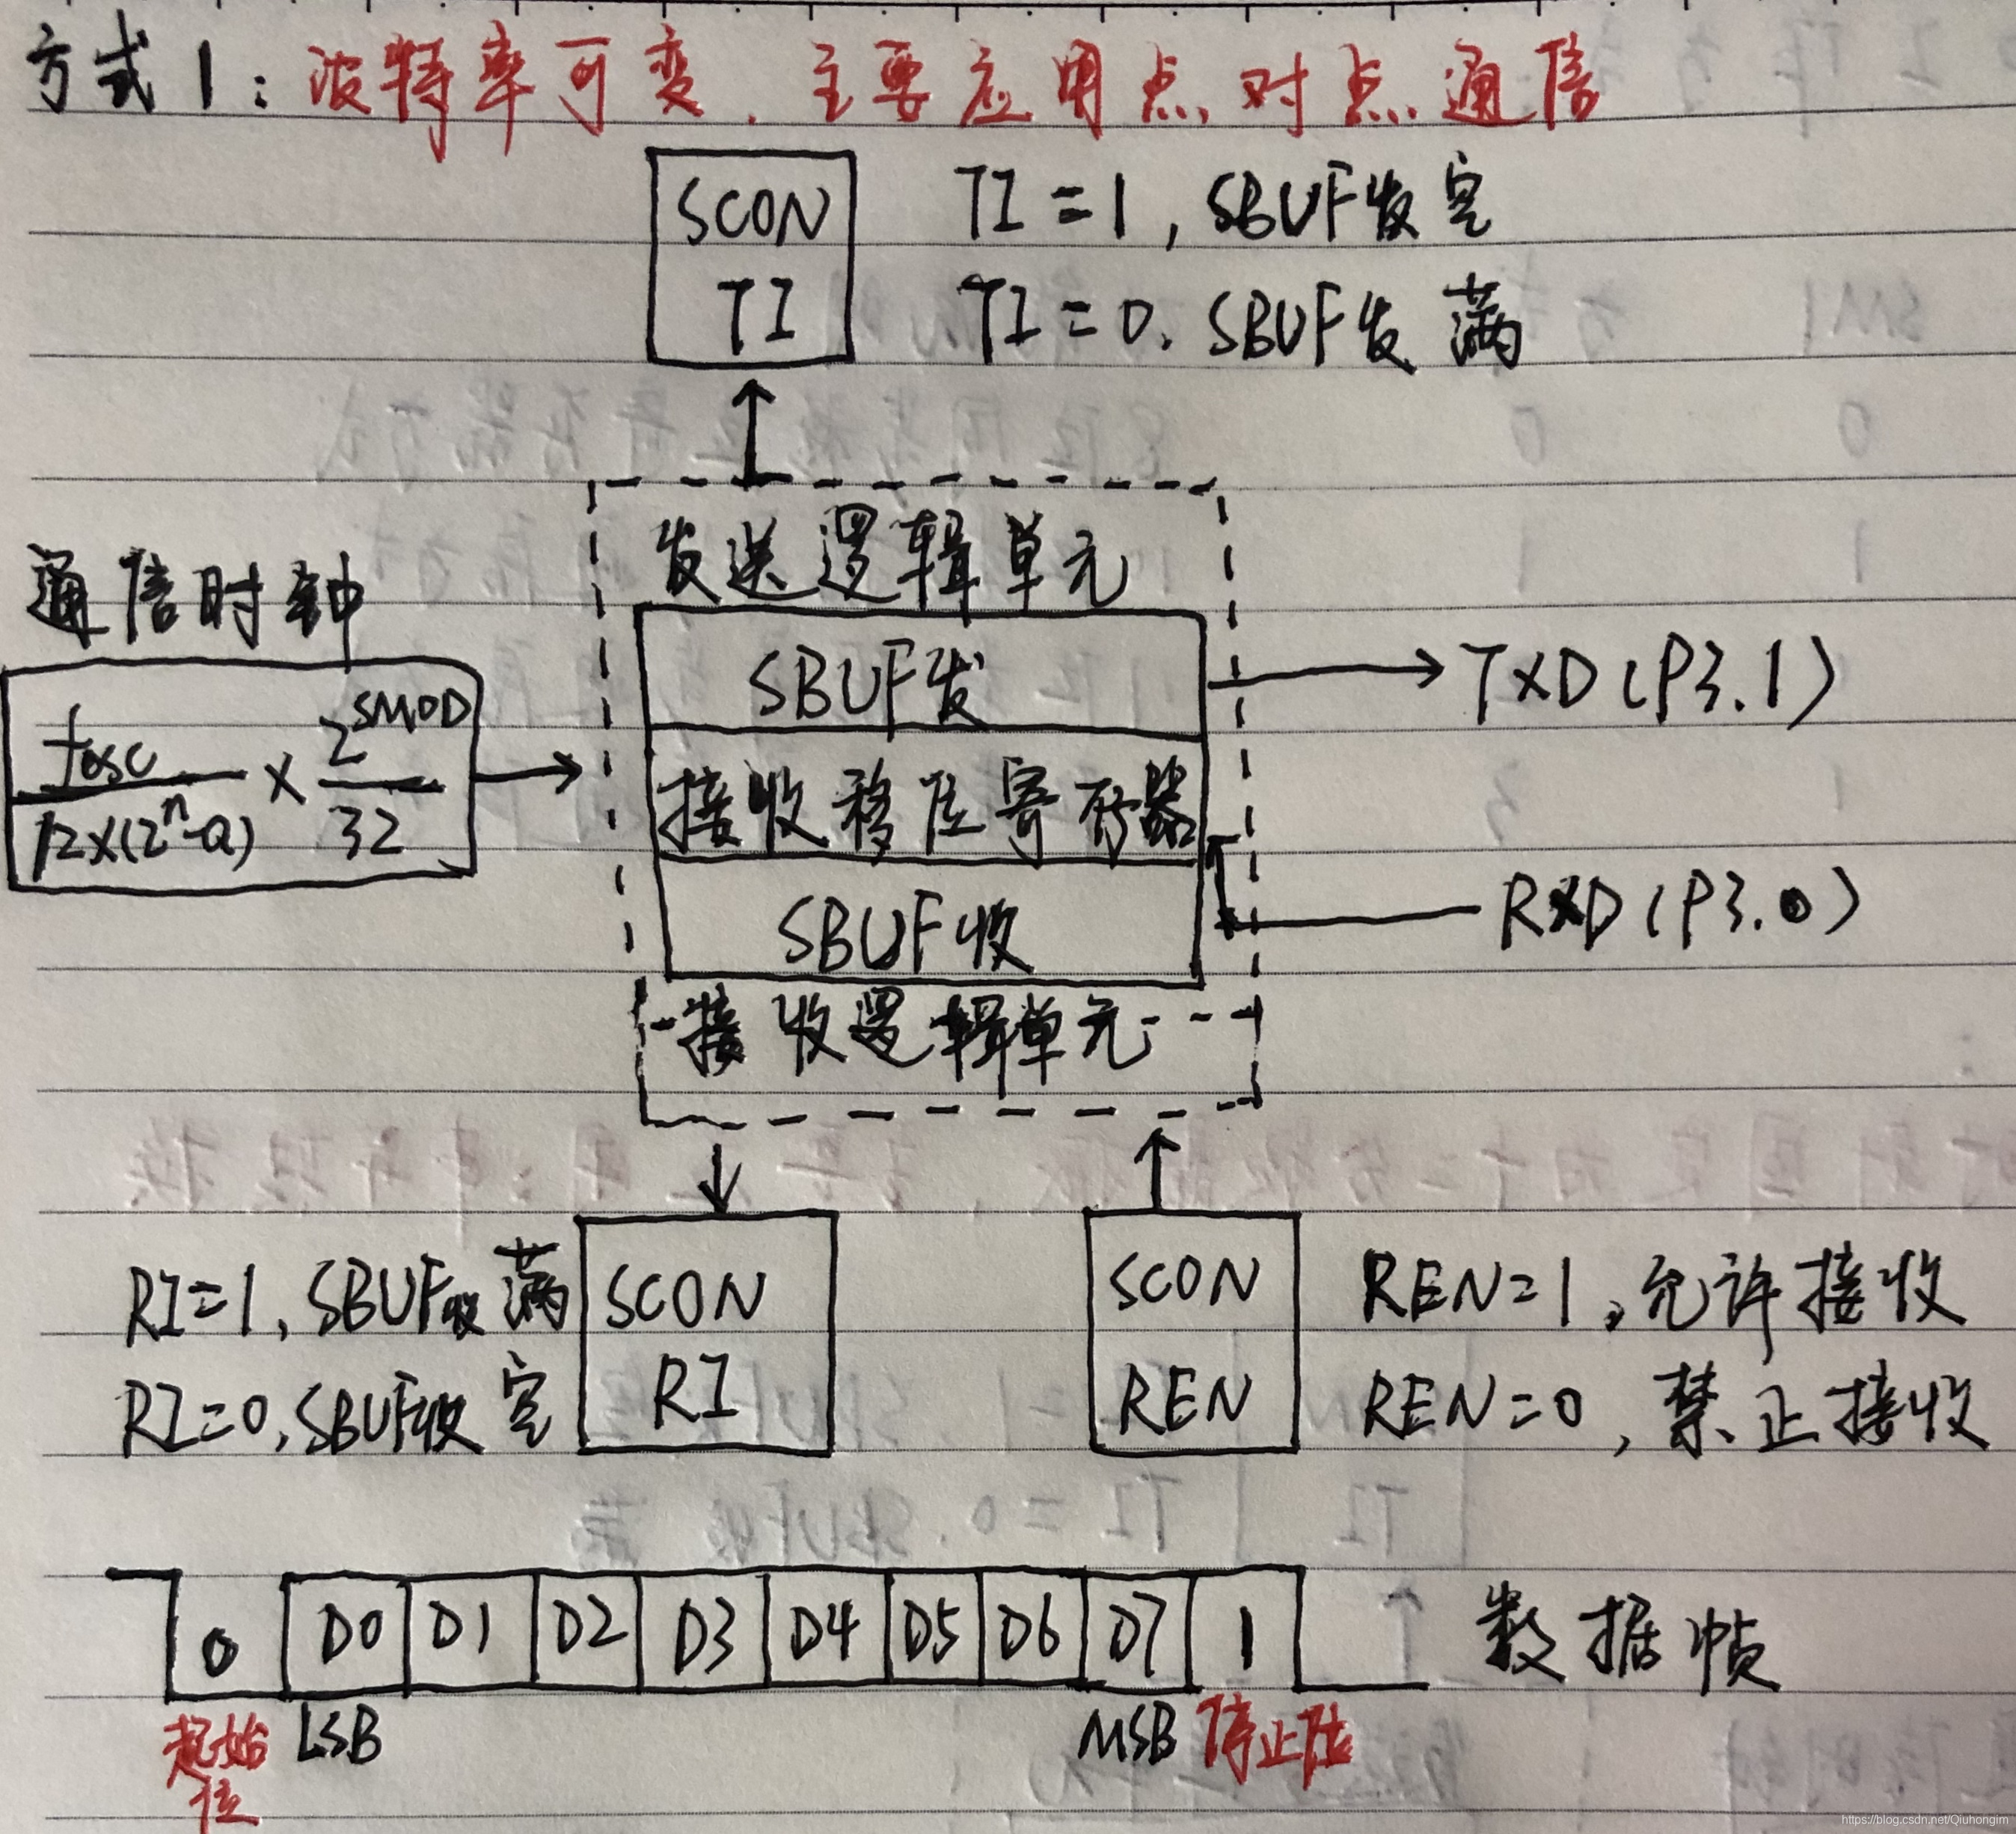 方式1：波特率可变，主要应用点对点通信
SCON
TI
TI=1，SBUF发空
TI=0，SBUF发 满
通信时钟
fosc/12×(2^n-a) × 2^SMOD/32
发送逻辑单元
SBUF发
接收移位寄存器
SBUF收
接收逻辑单元
TXD(P3.1)
RXD(P3.0)
RI=1，SBUF收满
RI=0，SBUF收空
SCON
RI
SCON
REN
REN=1，允许接收
REN=0，禁止接收
0 D0 D1 D2 D3 D4 D5 D6 D7 1 数据帧
起始位 LSB MSB 停止位
https://blog.csdn.net/Qiuhongim